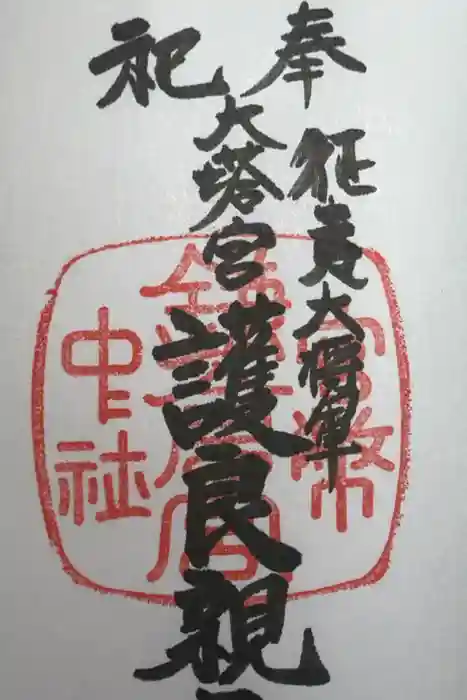 奉祀
征夷大将軍
大塔宮護良親
官幣
中社
鎌倉宮